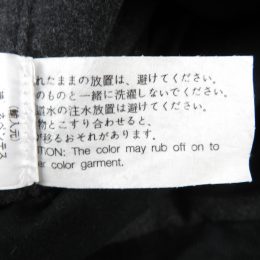 れたままの放置は、避けてください。
のものと一緒に洗濯しないでください。
道水の注水放置は避けてください。
物とこすり合わせると、
が移るおそれがあります。
TION: The color may rub off on to
er color garment.